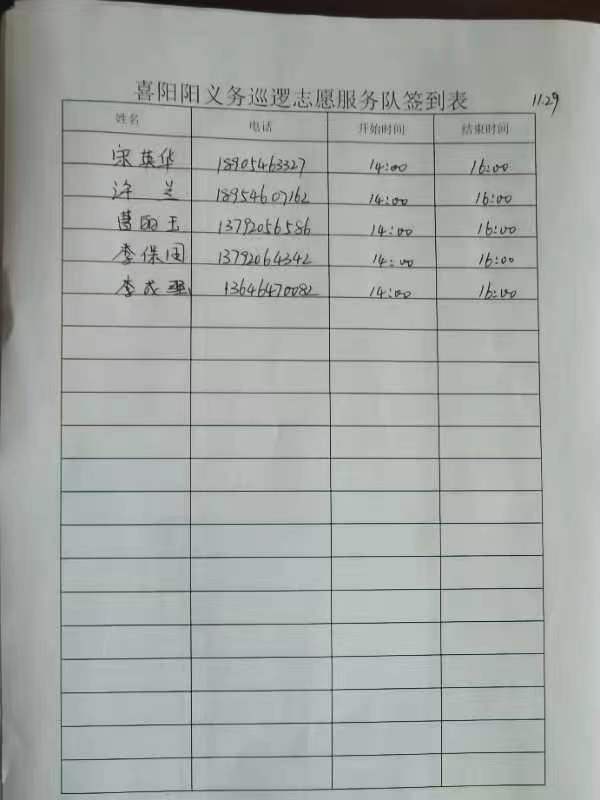 喜阳阳义务巡逻志愿服务队签到表 11.29
姓名 电话 开始时间 结束时间
宋英华 18905463327 14:00 16:00
许兰 18954607162 14:00 16:00
曹 玉 13792056586 14:00 16:00
李保田 13792064342 14:00 16:00
李 13646470082 14:00 16:00